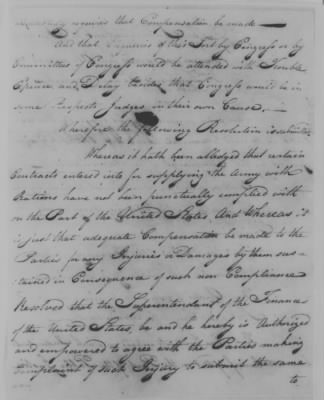 requires that Compensation be made —
And that Enquiries of this Sort by Congress or by
Committees of Congress would be attended with Trouble
Expence and Delay besides that Congress would be in
some Respects Judges in their own Cause. —
Wherefore the following Resolution is submitted
Whereas it hath been alledged that certain
Contracts entered into for supplying the Army with
Rations have not been punctually complied with
on the Part of the United States And Whereas it
is just that adequate Compensation be made to the
Parties for any Injuries or Damages by them sus-
tained in Consequence of such non Compliance
Resolved that the Superintendant of the Finances
of the United States, be and he hereby is Authorized
and empowered to agree with the Parties making
Complaint of such Injury to submit the same
to